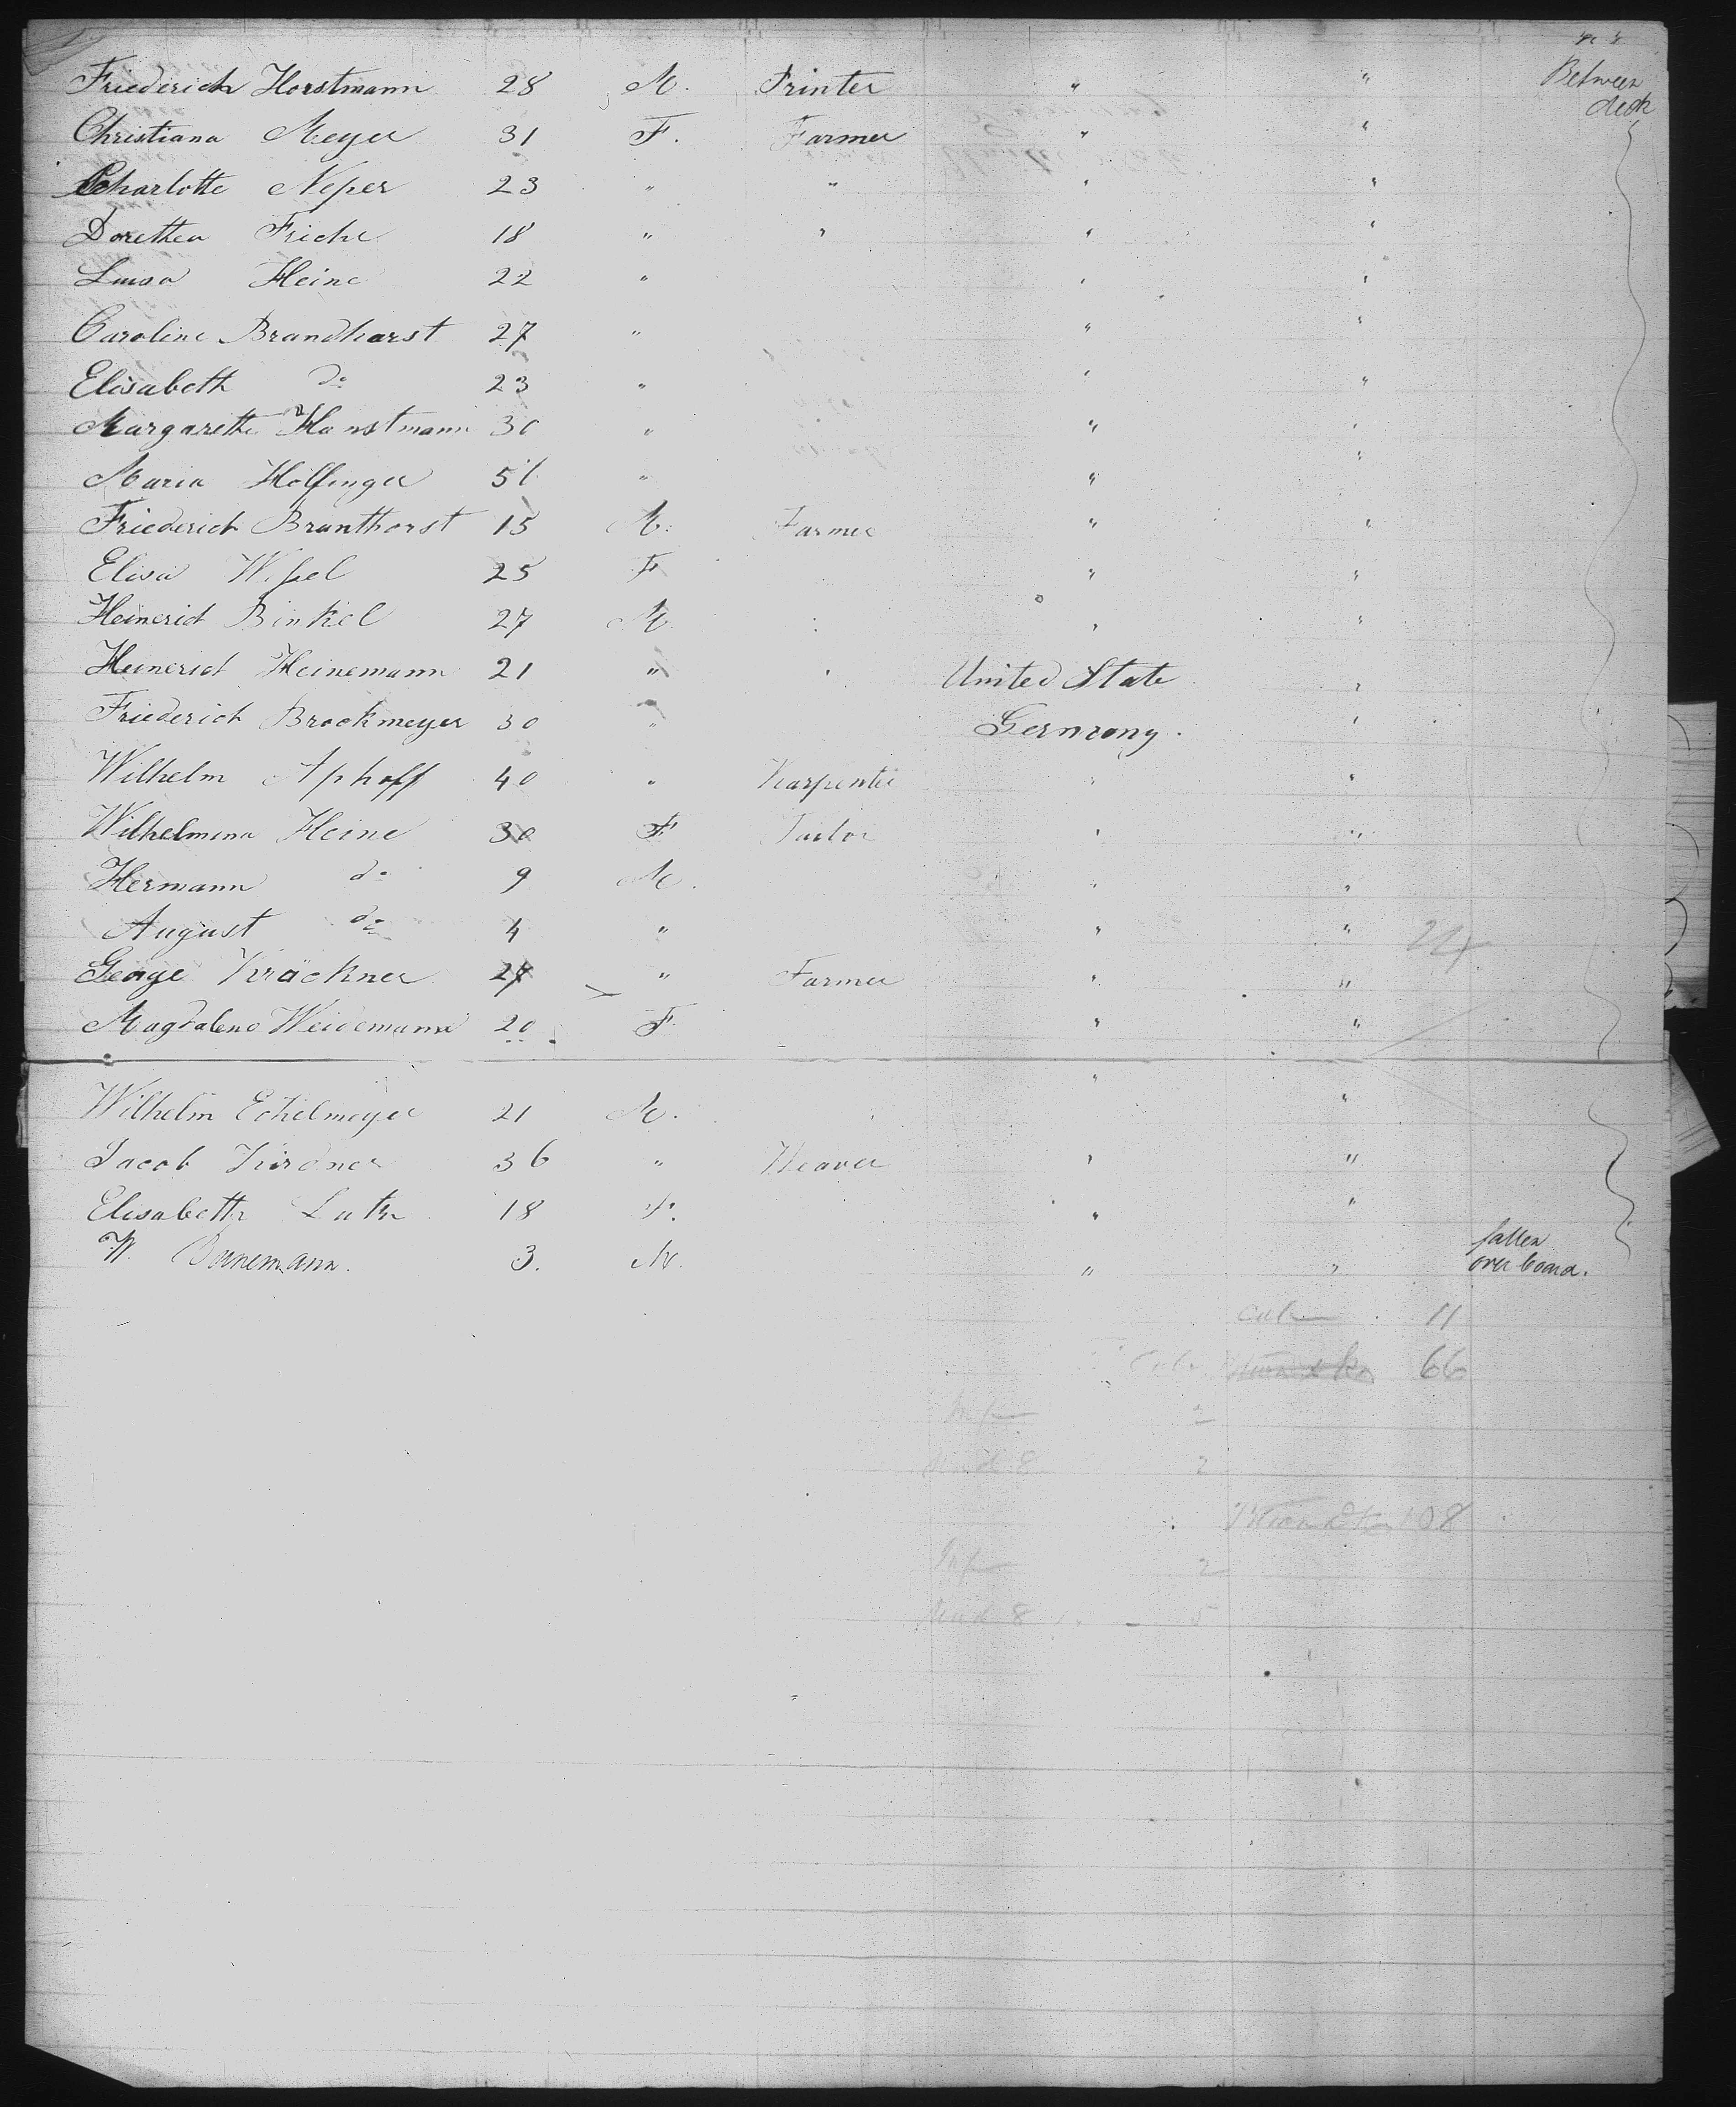 Between
deck
Friederich Horstmann 28 M. Printer " "
Christiana Meyer 31 F. Farmer " "
Charlotte Neper 23 " " " "
Dorethea Friche 18 " " " "
Luisa Heine 22 " " "
Caroline Brandhorst 27 " " "
Elisabeth do 23 " " "
Margarethe Horstmann 30 " " "
Maria Holfinger 51 " " "
Friederich Branthorst 15 M. Farmer " "
Elisa Weßel 25 F " "
Heinerich Binkel 27 M " "
Heinerich Heinemann 21 " " United State "
Friederich Brockmeyer 30 " Germany. "
Wilhelm Aphoff 40 " Karpenter " "
Wilhelmina Heine 30 F Tailor " "
Hermann do 9 M. " "
August do 4 " " " 24
George Kräckner 27 " Farmer " "
Magdalene Weidemann 20 F. " "
Wilhelm Eckelmeyer 21 M. " "
Jacob Kirdner 36 " Weaver " "
Elisabeth Luth 18 F. " "
W. Dunemann. 3. M. " " fallen
over board.
11
66
2
2
108
Inf 2
Und 8 5